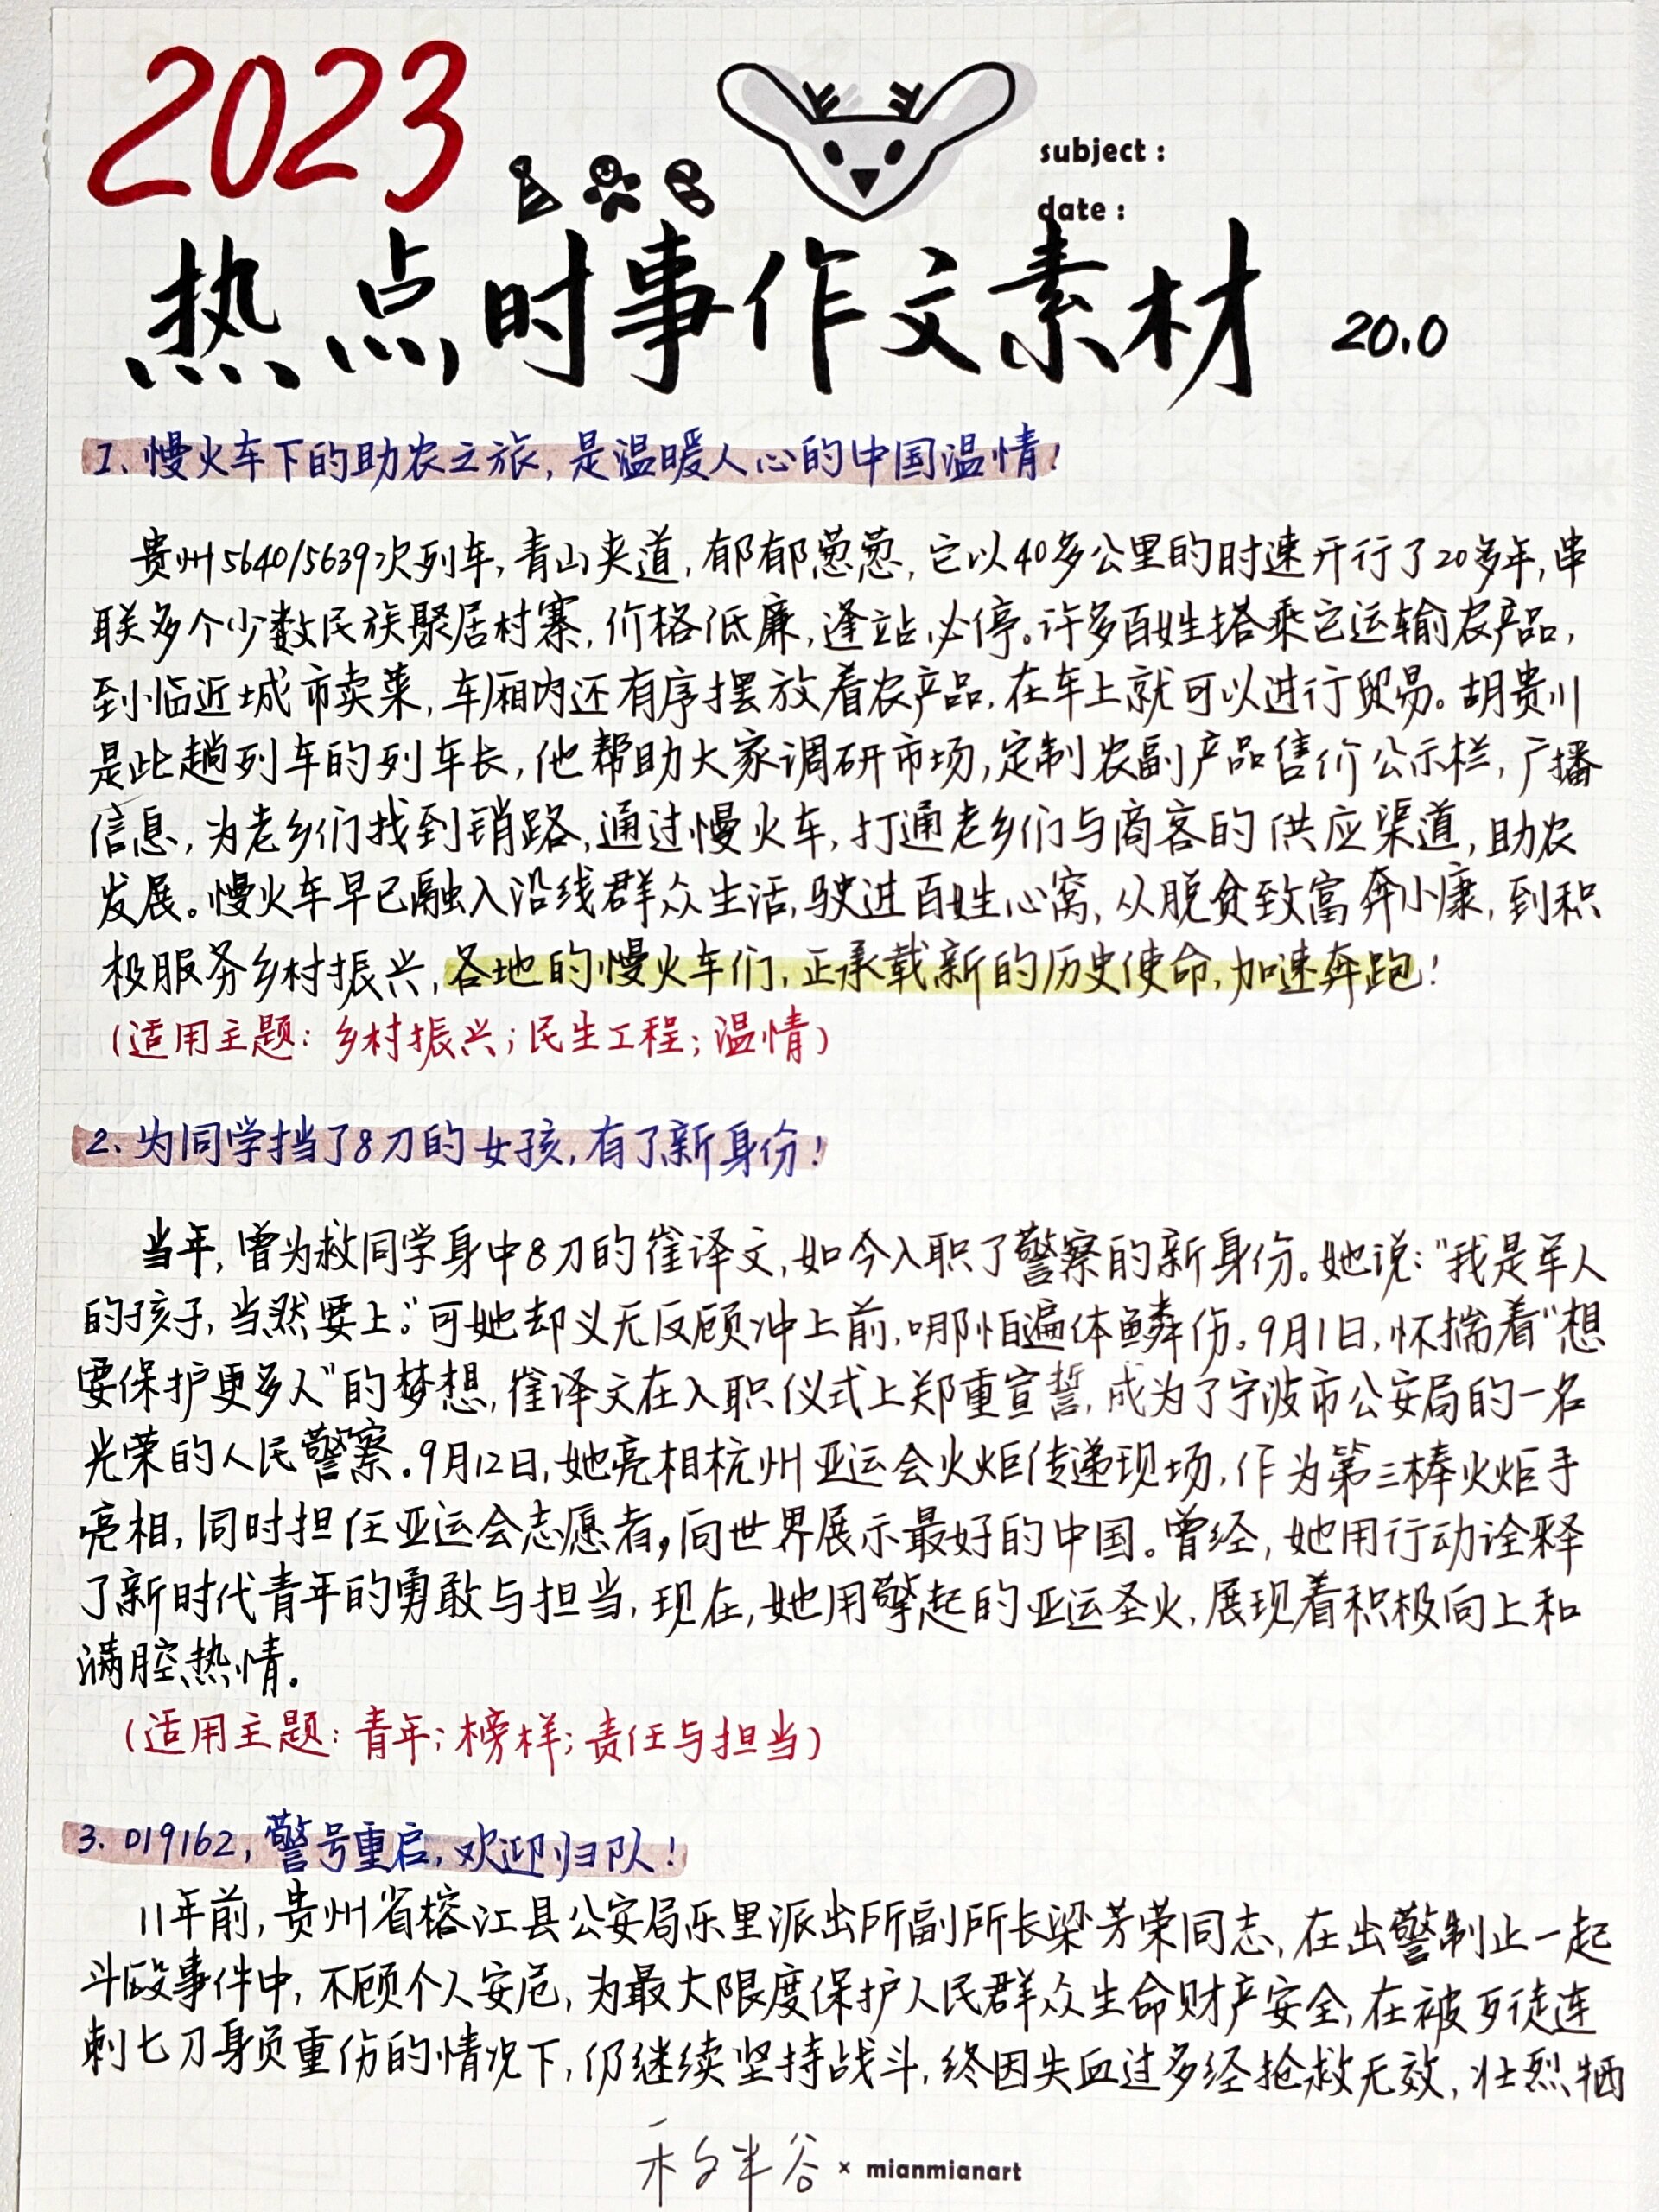 2023
subject :
date :
热点时事作文素材 20.0
1、慢火车下的助农之旅，是温暖人心的中国温情！
贵州5640/5639次列车，青山夹道，郁郁葱葱，它以40多公里的时速开行了20多年，串
联多个少数民族聚居村寨，价格低廉，逢站必停。许多百姓搭乘它运输农产品，
到临近城市卖菜，车厢内还有序摆放着农产品，在车上就可以进行贸易。胡贵川
是此趟列车的列车长，他帮助大家调研市场，定制农副产品售价公示栏，广播
信息，为老乡们找到销路，通过慢火车，打通老乡们与商客的供应渠道，助农
发展。慢火车早已融入沿线群众生活，驶进百姓心窝，从脱贫致富奔小康，到积
极服务乡村振兴，各地的慢火车们，正承载新的历史使命，加速奔跑！
（适用主题：乡村振兴；民生工程；温情）
2、为同学挡了8刀的女孩，有了新身份！
当年，曾为救同学身中8刀的崔译文，如今入职了警察的新身份。她说：“我是军人
的孩子，当然要上。”可她却义无反顾冲上前，哪怕遍体鳞伤。9月1日，怀揣着“想
要保护更多人”的梦想，崔译文在入职仪式上郑重宣誓，成为了宁波市公安局的一名
光荣的人民警察。9月12日，她亮相杭州亚运会火炬传递现场，作为第三棒火炬手
亮相，同时担任亚运会志愿者，向世界展示最好的中国。曾经，她用行动诠释
了新时代青年的勇敢与担当，现在，她用擎起的亚运圣火，展现着积极向上和
满腔热情。
（适用主题：青年；榜样；责任与担当）
3. 019162，警号重启，欢迎归队！
11年前，贵州省榕江县公安局乐里派出所副所长梁芳荣同志，在出警制止一起
斗殴事件中，不顾个人安危，为最大限度保护人民群众生命财产安全，在被歹徒连
刺七刀身负重伤的情况下，仍继续坚持战斗，终因失血过多经抢救无效，壮烈牺
半谷 × mianmianart